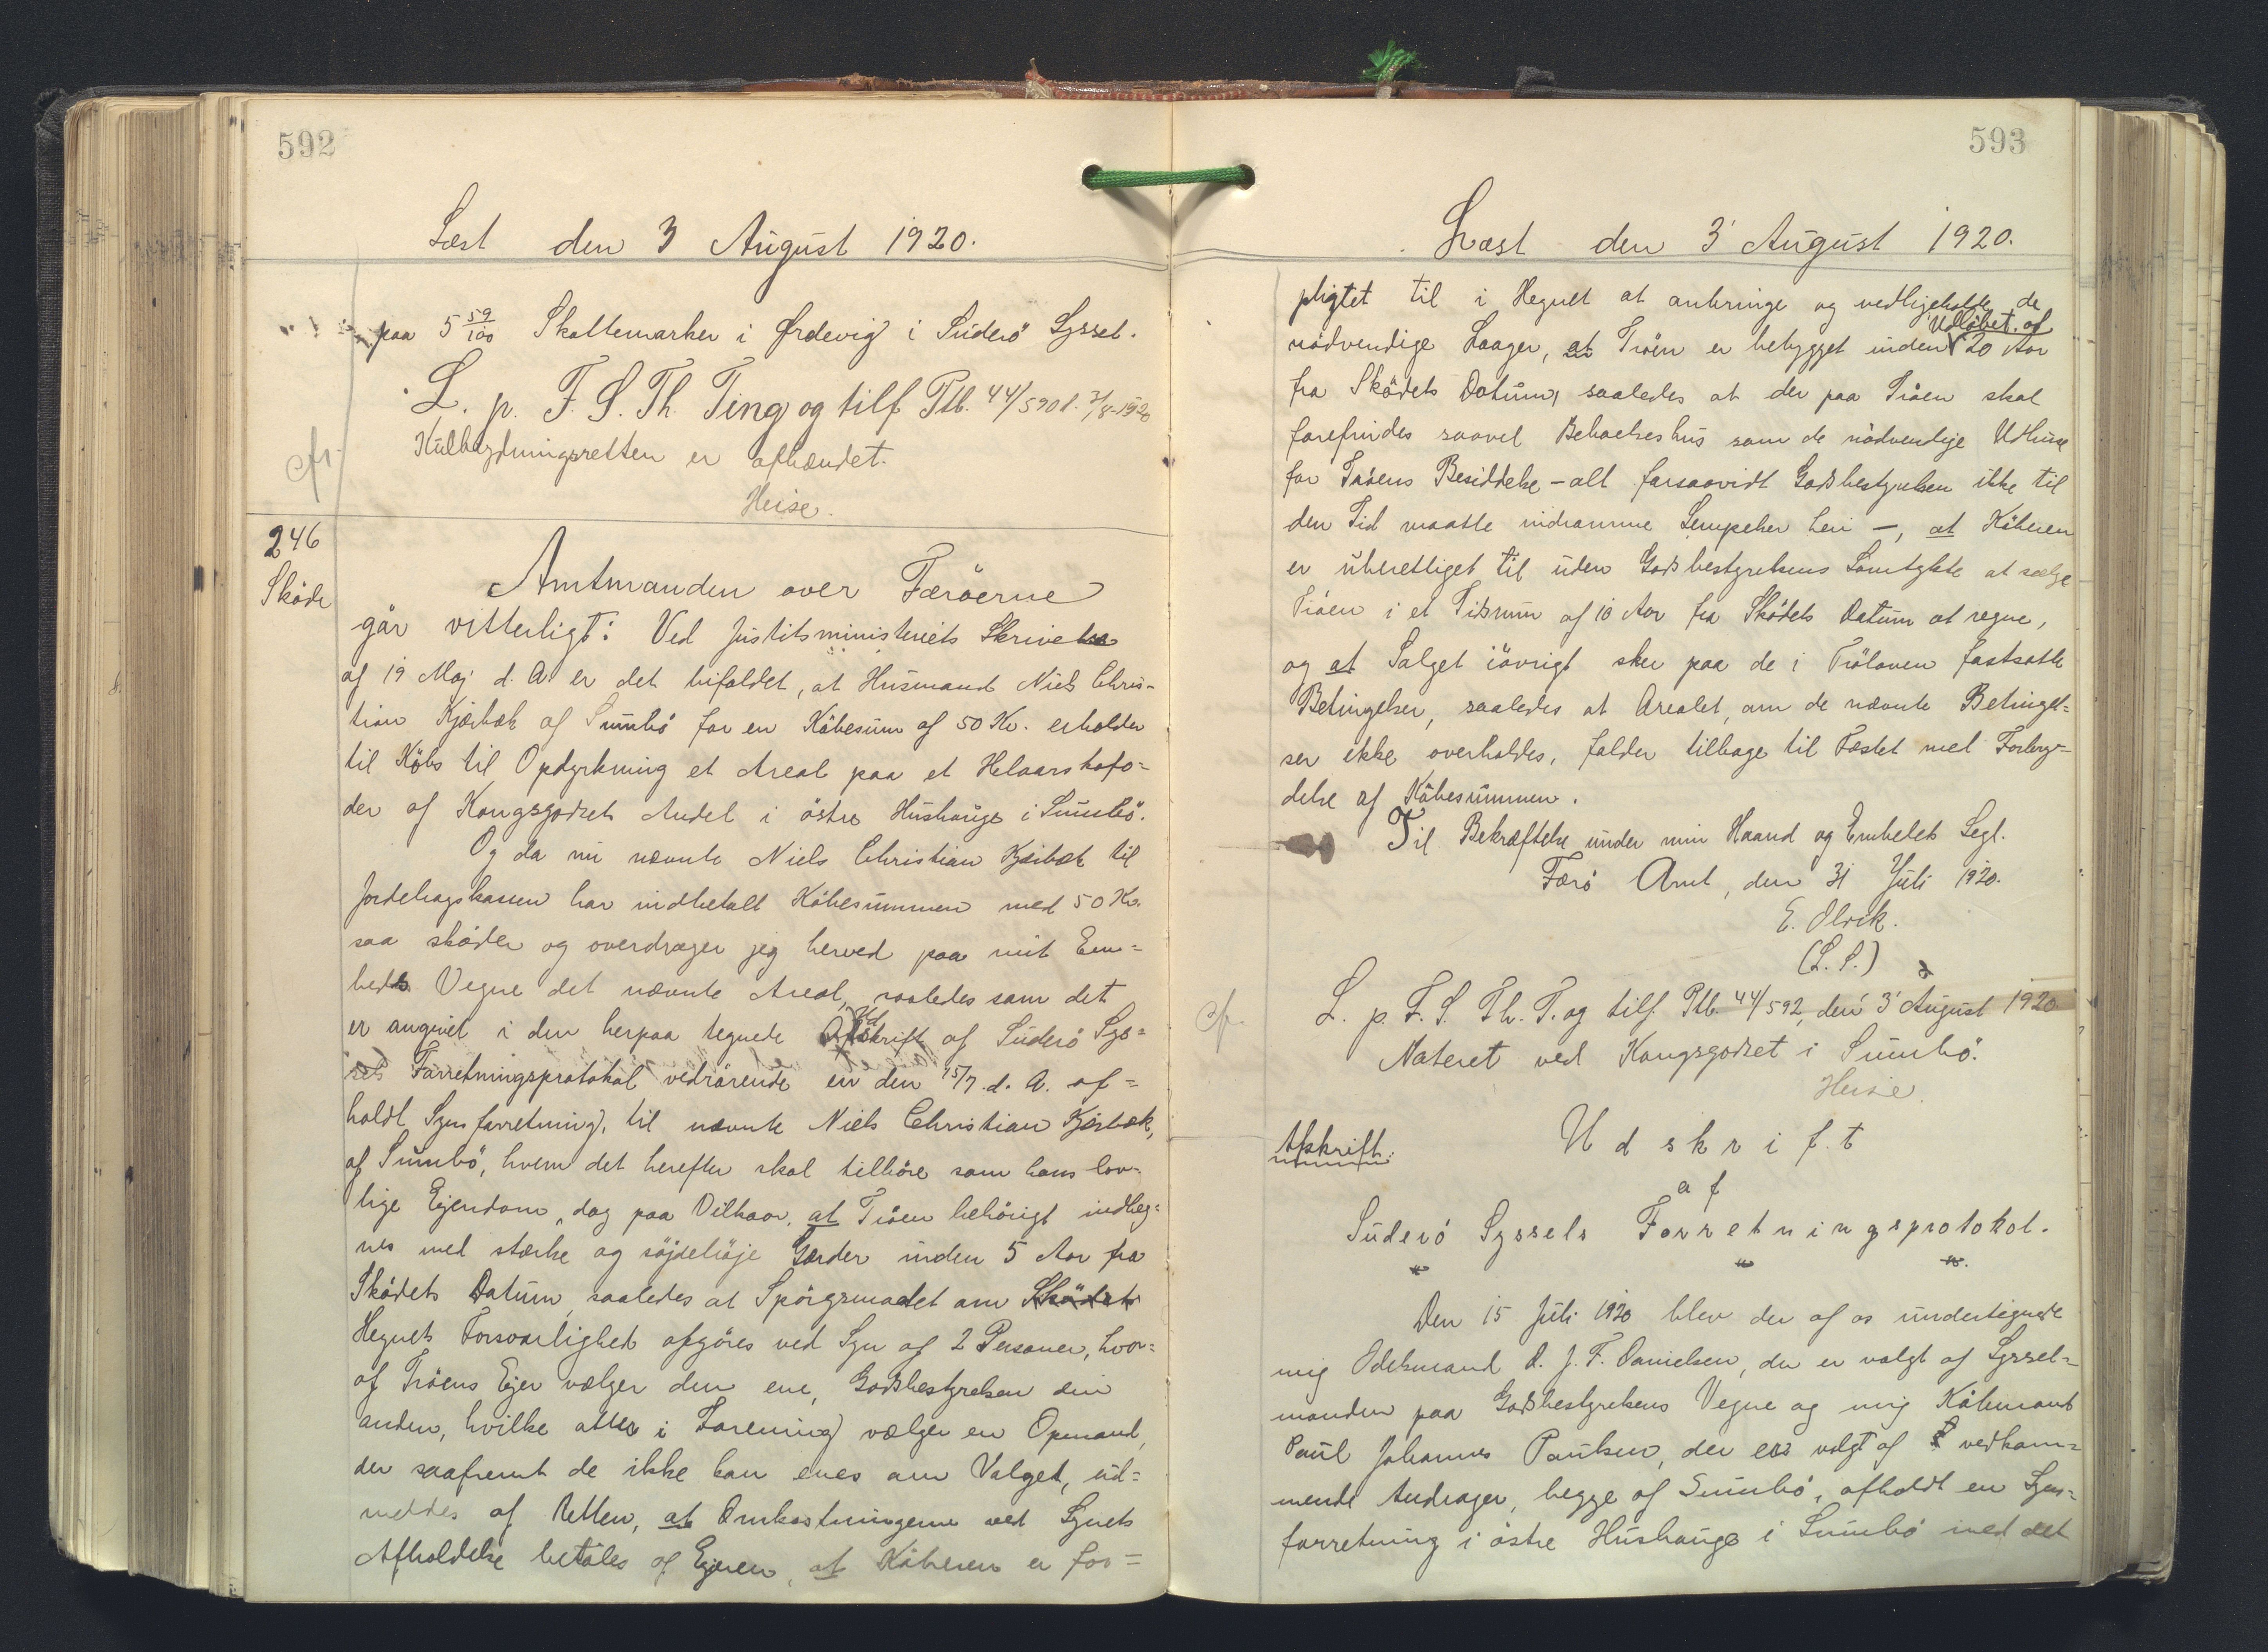 592
Læst den 3 August 1920.
paa 5 59/100 Skattemarker i Ørdevig i Suderö Syssel.
L. p. F. S. Th. Ting og tilf Ptb. 44/590 d. 3/8-1920
cfr. Kulbrydningsretten er afhændet.
Heise.
246
Sköde
Amtmanden over Færöerne
gör vitterligt: Ved Justitsministeriets Skrivelse
af 19 Maj d. A. er det bifaldet, at Husmand Niels Chris-
tian Kjærbæk af Sumbö for en Köbesum af 50 Kr. erholder
til Köbs til Opdyrkning et Areal paa et Helaarskofo=
der af Kongsgodsets Andel i östre Hushauge i Sumbö.
Og da nu nævnte Niels Christian Kjærbæk til
Jordebogskassen har indbetalt Köbesummen med 50 Kr.
saa sköder og overdrager jeg herved paa mit Em=
beds Vegne det nævnte Areal, saaledes som det
er angivet i den herpaa tegnede Udskrift af Suderö Sys=
sels Forretningsprotokol vedrörende en den 15/7 d. A. af=
holdt Synsforretning, til nævnte Niels Christian Kjærbæk,
af Sumbö, hvem det herefter skal tilhöre som hans lov-
lige Ejendom, dog paa Vilkaar, at Tröen behörigt indheg=
nes med stærke og söjdehöje Gærder inden 5 Aar fra
Sködets Datum, saaledes at Spörgsmaalet om Sködets
Hegnets Forsvarlighed afgöres ved Syn af 2 Personer, hvor=
af Tröens Ejer vælger den ene, Godsbestyrelsen den
anden, hvilke atter i Forening vælger en Opmand,
der saafremt de ikke kan enes om Valget, ud=
meldes af Retten, at Omkostningerne ved Synets
Afholdelse betales af Ejeren, at Köberen er for=
593
Læst den 3' August 1920.
pligtet til i Hegnet at anbringe og vedligeholde de
nödvendige Laager, at Tröen er bebygget inden Udløbet af 20 Aar
fra Sködets Datum, saaledes at der paa Tröen skal
forefindes saavel Beboelseshus som de nödvendige Udhuse
for Tröens Besiddelse - alt forsaavidt Godsbestyrelsen ikke til
den Tid maatte indrømme Lempelser heri -, at Köberen
er uberettiget til uden Godsbestyrelsens Samtykke at sælge
Tröen i et Tidsrum af 10 Aar fra Sködets Datum at regne,
og at Salget iövrigt sker paa de i Trölaven fastsatte
Betingelser, saaledes at Arealet, om de nævnte Betingel=
ser ikke overholdes, falder tilbage til Fæstet med Forbry=
delse af Köbesummen.
Til Bekræftelse under min Haand og Embedets Segl.
Færö Amt, den 31 Juli 1920.
E. Olrik.
(L. S.)
cfr. L. p. F. S. Th. T. og tilf. Ptb. 44/592, den 3' August 1920
Noteret ved Kongsgodset i Sumbö.
Heise.
Afskrift.
Udskrift
af
Suderö Syssels Forretningsprotokol.
Den 15 Juli 1920 blev der af os undertegnede
mig Odelsmand D. J. F. Danielsen, der er valgt af Syssel=
manden paa Godsbestyrelsens Vegne og mig Köbmand
Paul Johannes Poulsen, der er valgt af vedkom=
mende Andrager, begge af Sumbö, afholdt en Syns=
forretning i östre Hushauge i Sumbö med det